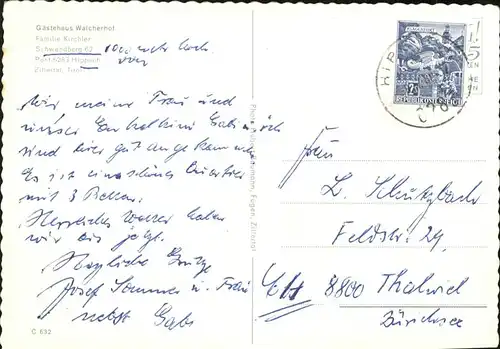 Gästehaus Walcherhof
Familie Kirchler
Schwendberg 62
Post 6283 Hippach
Zillertal, Tirol
1000 mtr hoch
Wir meine Frau und
unser Enkelkind Gabi
sind hier gut angekommen
Es ist ein schönes Quartier
mit 3 Betten.
Herrliches Wetter haben
wir bis jetzt.
Herzliche Grüße
Josef Sommer u. Frau
nebst Gabi
C 632
HIP
REPUBLIK ÖSTERREICH
Frau
L. Schutzbach
Feldstr. 29
CH 8800 Thalwil
Zürichsee